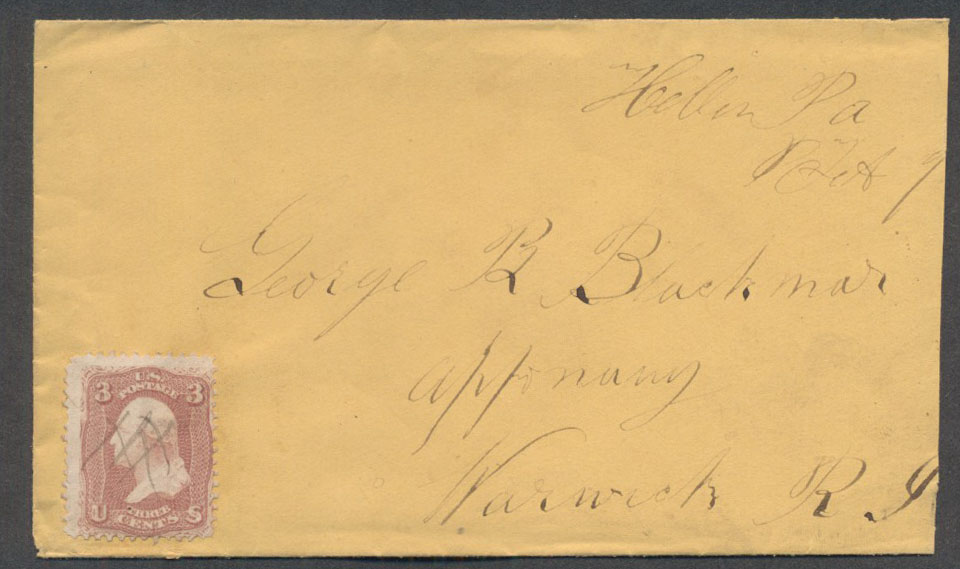 Hellen Pa
Oct 9
George R Blackmar
apponaug
Warwick R I
U.S.
POSTAGE
3 3
THREE
CENTS
U S